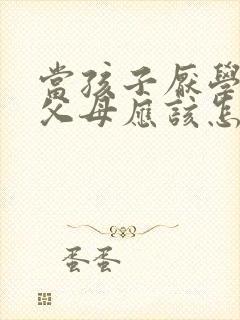 當孩子厭學
父母應該怎
蛋蛋